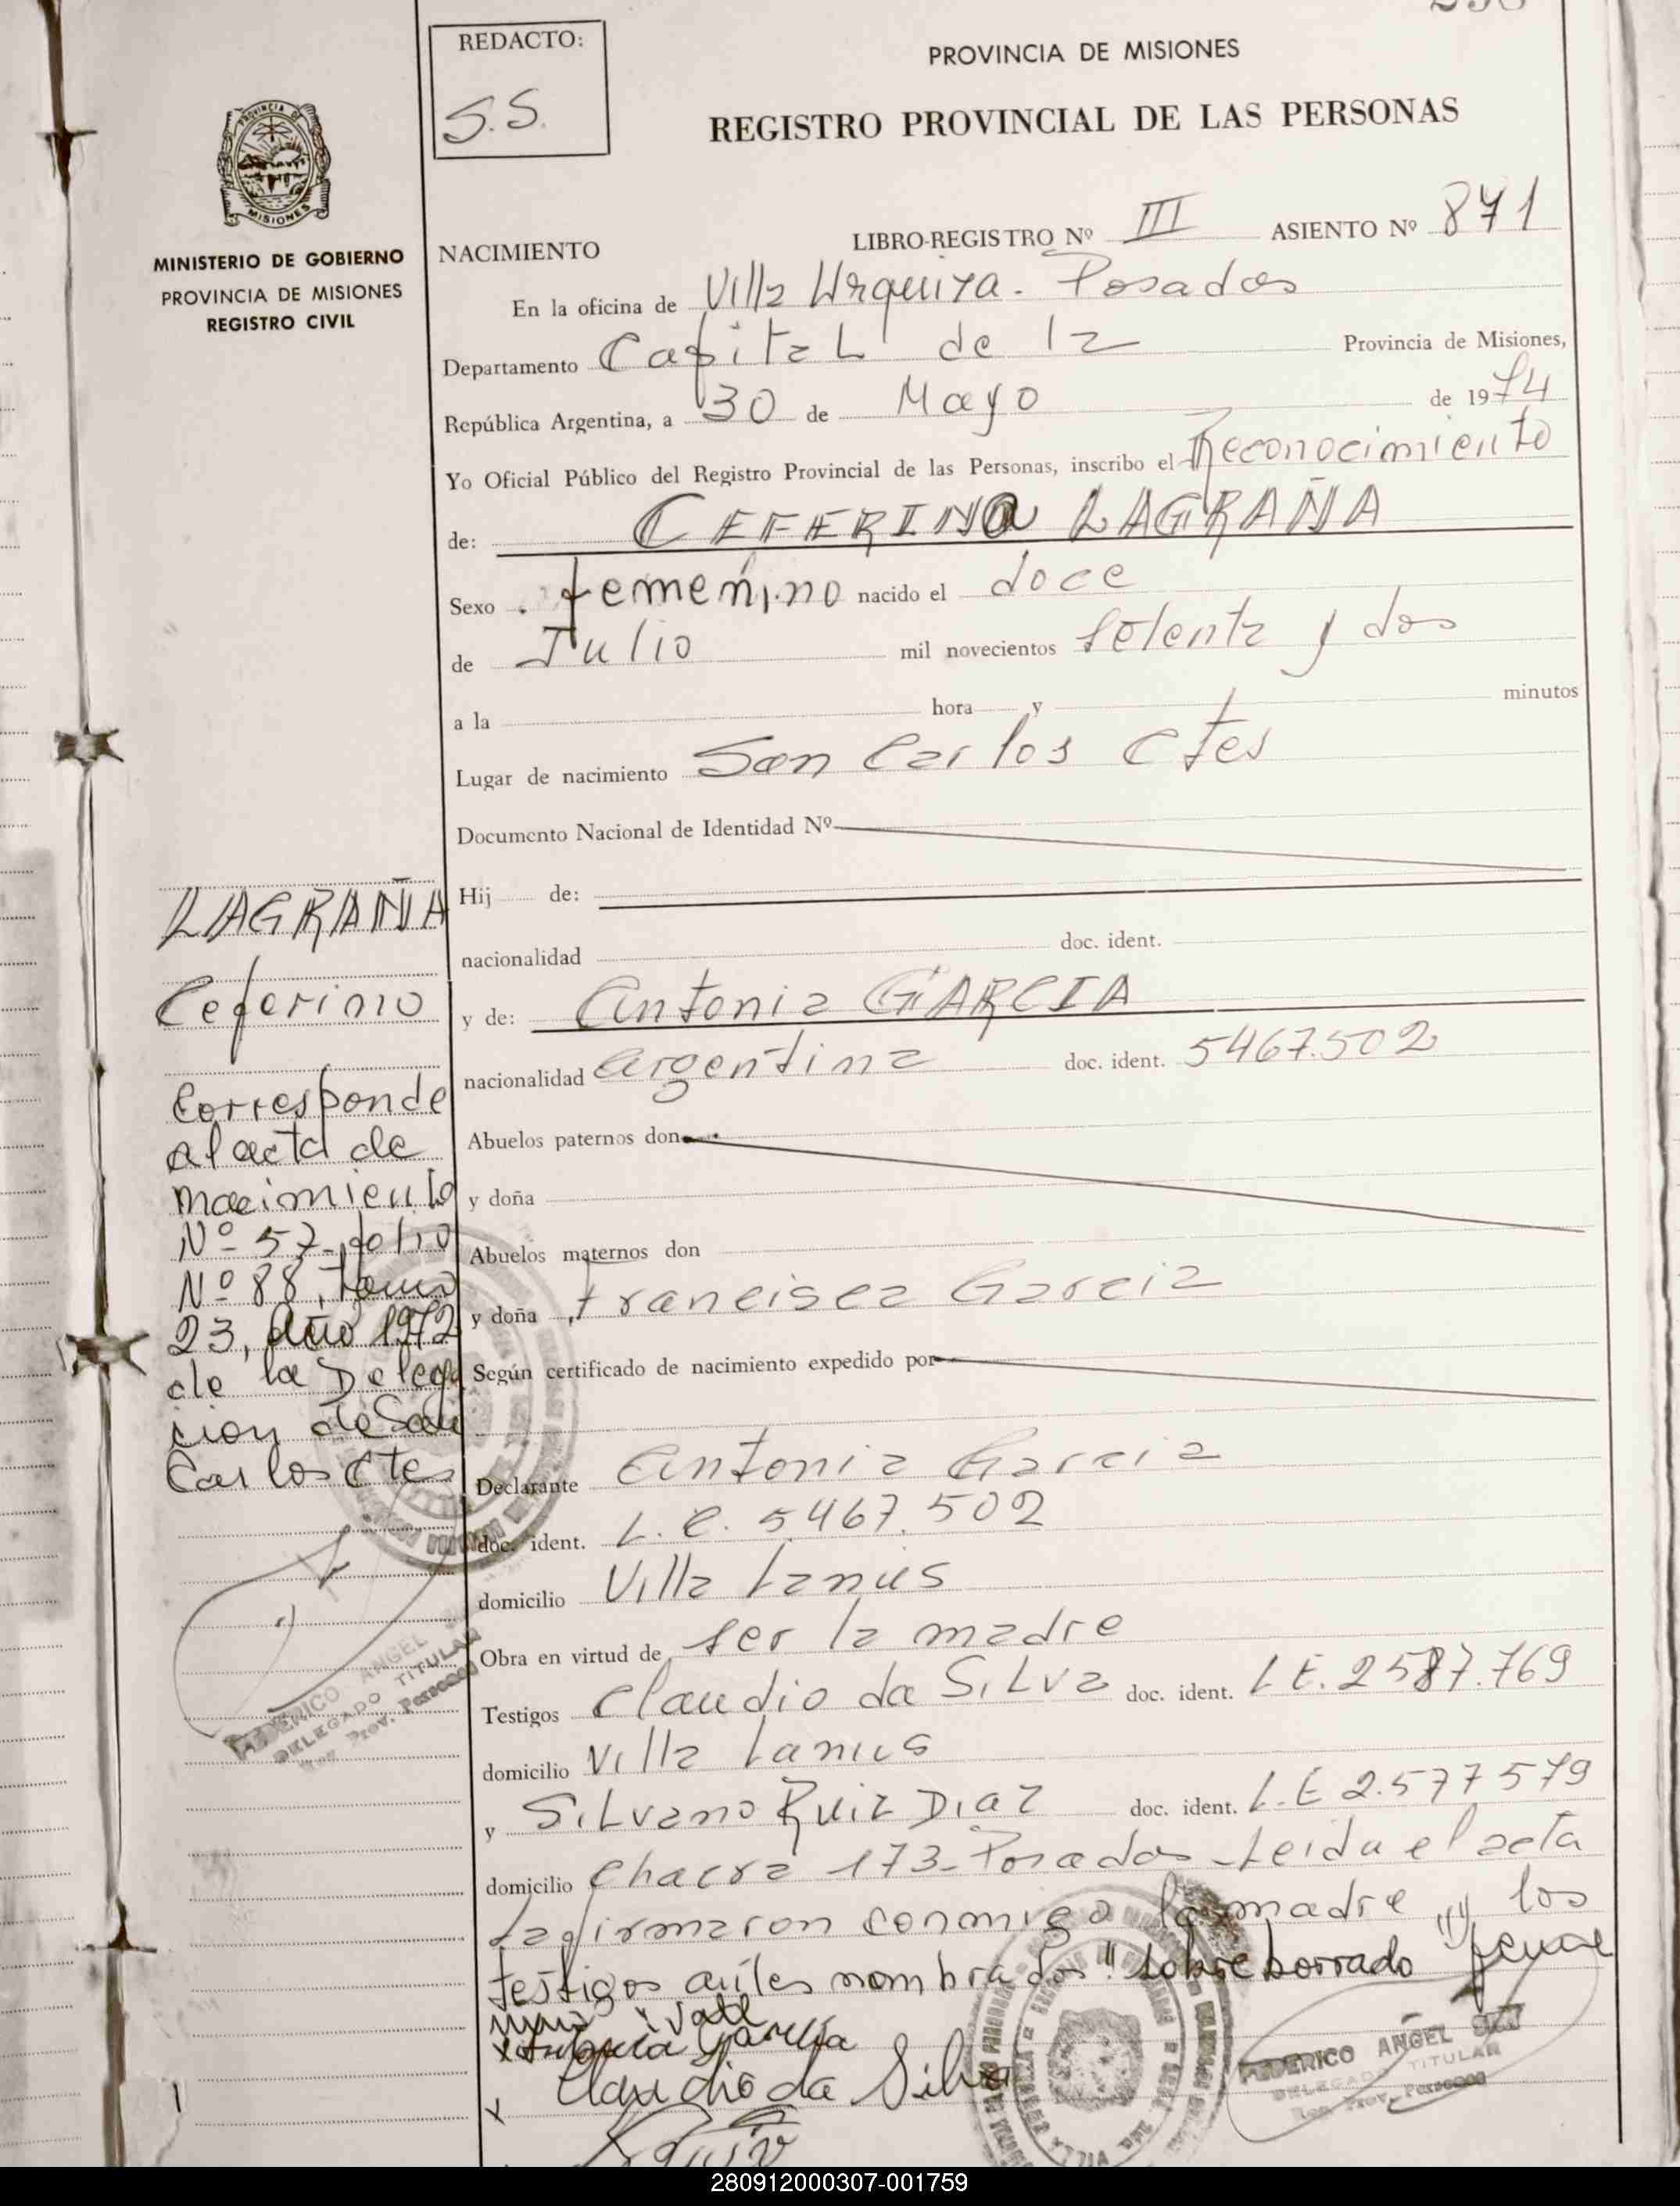 REDACTO:
S.S.
PROVINCIA DE MISIONES
REGISTRO PROVINCIAL DE LAS PERSONAS
MINISTERIO DE GOBIERNO
PROVINCIA DE MISIONES
REGISTRO CIVIL
NACIMIENTO
LIBRO-REGISTRO Nº III ASIENTO Nº 871
En la oficina de Villa Urquiza. Posadas
Departamento Capital de la Provincia de Misiones,
República Argentina, a 30 de Mayo de 1974
Yo Oficial Público del Registro Provincial de las Personas, inscribo el Reconocimiento
de: CEFERINA LAGRAÑA
Sexo femenino nacido el doce
de Julio mil novecientos setenta y dos
a la hora y minutos
Lugar de nacimiento San Carlos Ctes
Documento Nacional de Identidad Nº
Hij de:
nacionalidad doc. ident.
y de: Antonia GARCIA
nacionalidad argentina doc. ident. 5467.502
Abuelos paternos don
y doña
Abuelos maternos don
y doña Francisca Garcia
Según certificado de nacimiento expedido por
Declarante Antonia Garcia
doc. ident. L.C. 5.467.502
domicilio Villa Lanús
Obra en virtud de ser la madre
Testigos Claudio da Silva doc. ident. L E. 2587.769
domicilio Villa Lanus
y Silvano Ruiz Diaz doc. ident. L.E 2.577579
domicilio Chacra 173-Posadas-Leida el acta
la firmaron conmigo la madre y los
testigos antes nombrados" sobre borrado "feme
nino" Vale
x Antonia Garcia
x Claudio da Silva
LAGRAÑA
Ceferino
Corresponde
al acta de
nacimiento
Nº 57-folio
Nº 88, tomo
23, año 1972
de la Delega
cion de San
Carlos Ctes
FEDERICO ANGEL
DELEGADO TITULAR
Reg. Prov. Personas
FEDERICO ANGEL
DELEGADO TITULAR
Reg. Prov. Personas
280912000307-001759